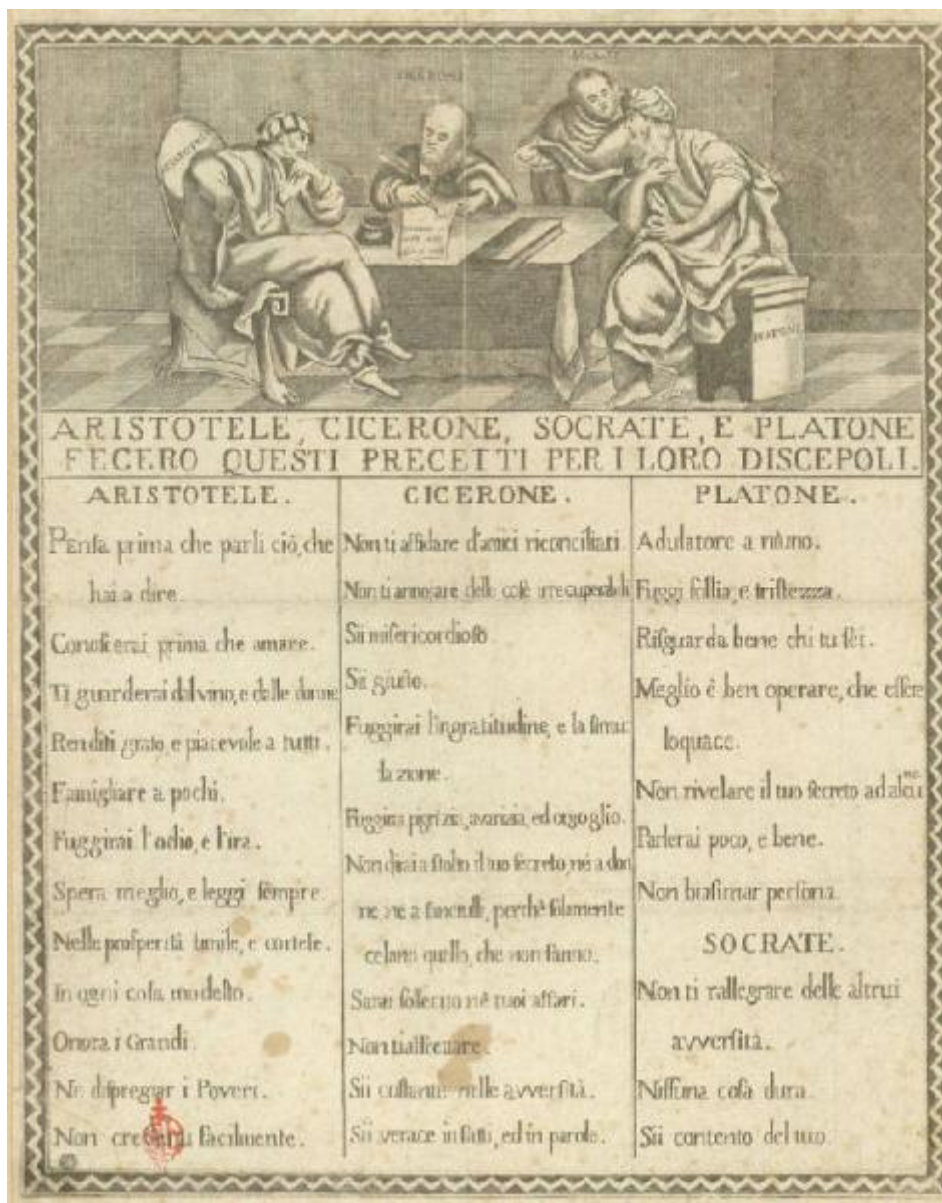 PLATONE
ARISTOTELE, CICERONE, SOCRATE, E PLATONE
FECERO QUESTI PRECETTI PER I LORO DISCEPOLI.
ARISTOTELE.
Penſa prima che parli ciò, che
hai a dire.
Conoſcerai prima che amare.
Ti guarderai dal vino, e dalle donne
Renditi grato, e piacevole a tutti.
Famigliare a pochi.
Fuggirai l'odio, e l'ira.
Spera meglio, e leggi ſempre.
Nelle proſperità umile, e corteſe.
In ogni coſa modeſto.
Onora i Grandi.
Ne diſpregiar i Poveri.
Non crederai facilmente.
CICERONE.
Non ti affidare d'amici riconciliati.
Non ti annojare delle coſe irrecuperabili
Sii miſericordioſo
Sii giuſto.
Fuggirai l'ingratitudine, e la ſimu
lazione.
Fuggirai pigrizia, avarizia, ed orgoglio.
Non dirai a ſtolto il tuo ſecreto, nè a don
ne, ne a fanciulli, perchè ſolamente
celano quello, che non ſanno.
Sarai ſollecito nè tuoi affari.
Non ti
Sii coſtante nelle avverſità.
Sii verace in fatti, ed in parole.
PLATONE.
Adulatore a niuno.
Fuggi follia, e triſtezza.
Riſguarda bene chi tu ſei.
Meglio è ben operare, che eſſere
loquace.
Non rivelare il tuo ſecreto ad alcuno
Parlerai poco, e bene.
Non biaſimar perſona.
SOCRATE.
Non ti rallegrare delle altrui
avverſità.
Niſſuna coſa dura.
Sii contento del tuo.